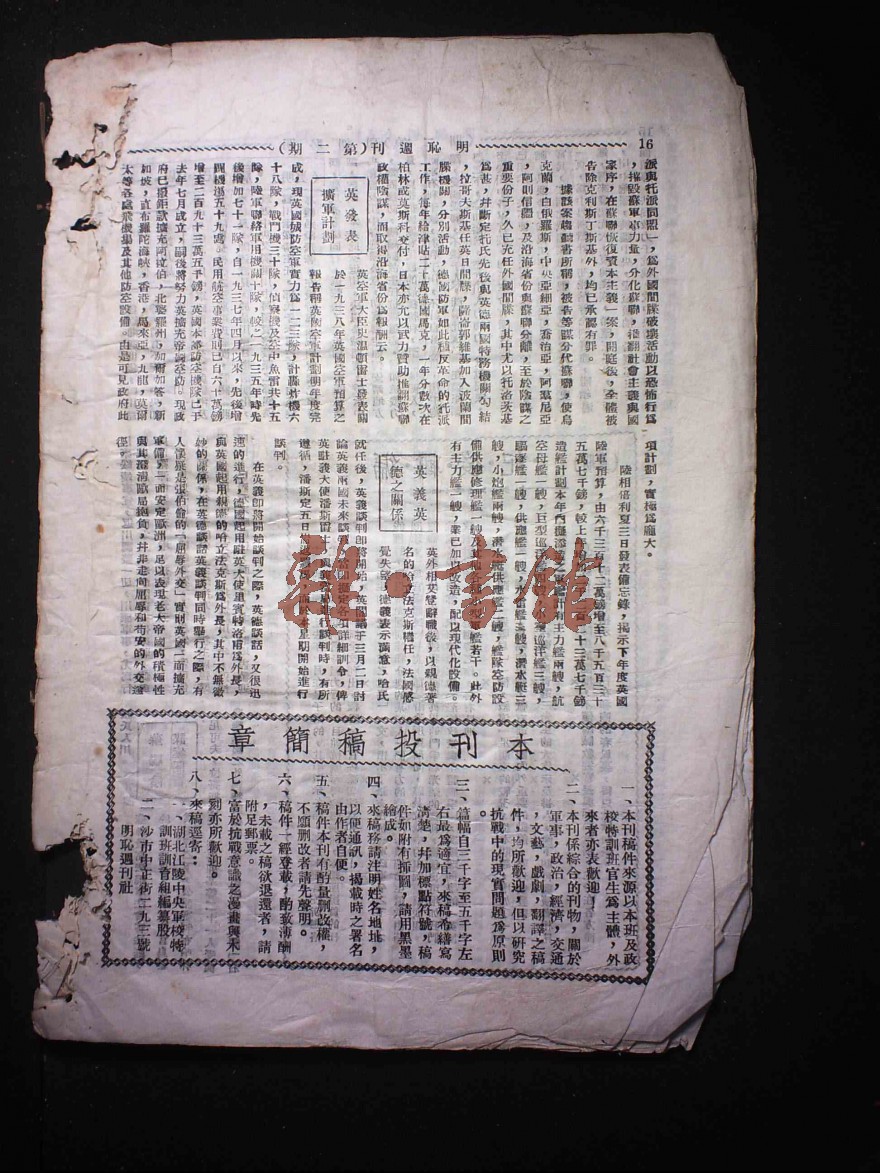 16
明恥週刊（第二期）
派與托派同盟」，為外國間諜破壞活動以恐怖行為
，摧毀蘇軍軍力量，分化蘇聯，推翻社會主義與國
家序，在蘇聯恢復資本主義」案，開庭後，全體被
告除克利斯丁斯基外，均已承認有罪。
據該案起訴書所稱，被告等謀分代蘇聯，使烏
克蘭，白俄羅斯，中央亞細亞，喬治亞，阿濕尼亞
，阿則倍疆，及沿海省份與蘇聯分離，至於陰謀之
重要份子，久已充任外國間諜，其中尤以托洛茨基
為甚，并斷定托氏先後與英德兩國特務機關勾結
，拉哥夫斯基任英日間諜，薩崙郭維基加入波蘭間
諜機關，分別活動，德國防軍如此種反革命的托派
工作，每年給津貼二十萬德國馬克，一年分數次在
柏林或莫斯科交付，日本亦允以武力贊助推翻蘇聯
政權陰謀，而取得沿海省份為報酬云。
英發表
擴軍計劃
英空軍大臣史溫頓雷士發表關
於一九三八年英國空軍預算之
報告稱英國空軍計劃明年度完
成，現英國城防空軍實力為一二三隊，計轟炸機六
十八隊，戰鬥機三十隊，偵察機及空中魚雷共十五
隊，陸軍聯絡軍用機關十隊，較之一九三五年時先
後增加七十一隊，自一九三七年四月以來，先後增
闢機場五十九處，民用航空事業費用已自六十萬鎊
增至二百九十三萬五千鎊，英國本部防空機隊已于
去年七月成立，嗣後將努力英擴充帝國空防。現政
府已撥鉅款擴充阿拉伯，北婆羅州，加爾加答，新
加坡，直布羅陀海峽，香港，馬來亞，九龍，英蘭
太等各處飛機場及其他防空設備。由是可見政府此
項計劃，實極為龐大。
陸相倍利夏三日發表備忘錄，揭示下年度英國
陸軍預算，由六千三百十二萬鎊增至八千五百三十
五萬七千鎊，較上年增加
十三萬七千鎊
造艦計劃本年內擬添
主力艦兩艘，航
空母艦一艘，巨型巡洋
巡洋艦三艘，
驅逐艦一艘，供應艦一艘，
艘，潛水艇三
艘，小炮艦兩艘，潛水艦供應艦一艘，艦隊空防設
備供應修理艦一艘，
艦若干。此外
有主力艦一艘，業已加以改造，配以現代化設備。
英義英
德之關係
英外相艾登辭職後，以親德著
名的哈立法克斯繼任，法國感
覺失望，德義表示滿意，哈氏
就任後，英義談判即將開始，英閣議于三月二日討
論英義兩國未來談判
各項詳細訓令，俾
英駐義大使潘斯雷士
行談判時，有所
遵循，潘斯定五日
星期開始進行
談判。
在英義即將開始談判之際，英德談話，又很迅
速的進行，德國起用駐英大使里賓特洛甫為外長，
與英國起用親德的哈立法克斯為外長，其中不無微
妙的關係，在英德談話英義談判同時舉行之際，有
人懷疑是張伯倫的「屈辱外交」實則英國一面擴充
軍備，一面安定歐洲，足以表現老大帝國的積極性
與其澄清歐局抱負，并非走向屈辱和苟安的外交途
徑。
本刊投稿簡章
一、本刊稿件來源以本班及政
校特訓班官生為主體，外
來者亦表歡迎！
二、本刊係綜合的刊物，關於
軍事，政治，經濟，交通
，文藝，戲劇，翻譯之稿
件，均所歡迎，但以研究
抗戰中的現實問題為原則
。
三、篇幅自三千字至五千字左
右最為適宜，來稿希繕寫
清楚，并加標點符號，稿
件如附有插圖，請用黑墨
繪成。
四、來稿務請注明姓名地址，
以便通訊，揭載時之署名
由作者自便。
五、稿件本刊有酌量刪改權，
不願刪改者請先聲明。
六、稿件一經登載，酌致薄酬
，未載之稿欲退還者，請
附足郵票。
七、富於抗戰意識之漫畫與木
刻亦所歡迎。
八、來稿逕寄：
一、湖北江陵中央軍校特
訓班訓育組編纂股
二、沙市中正街二九三號
明恥週刊社